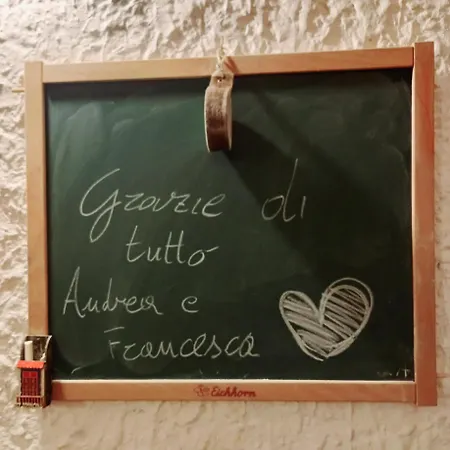 Grazie di
tutto
Andrea e
Francesca
Eichhorn